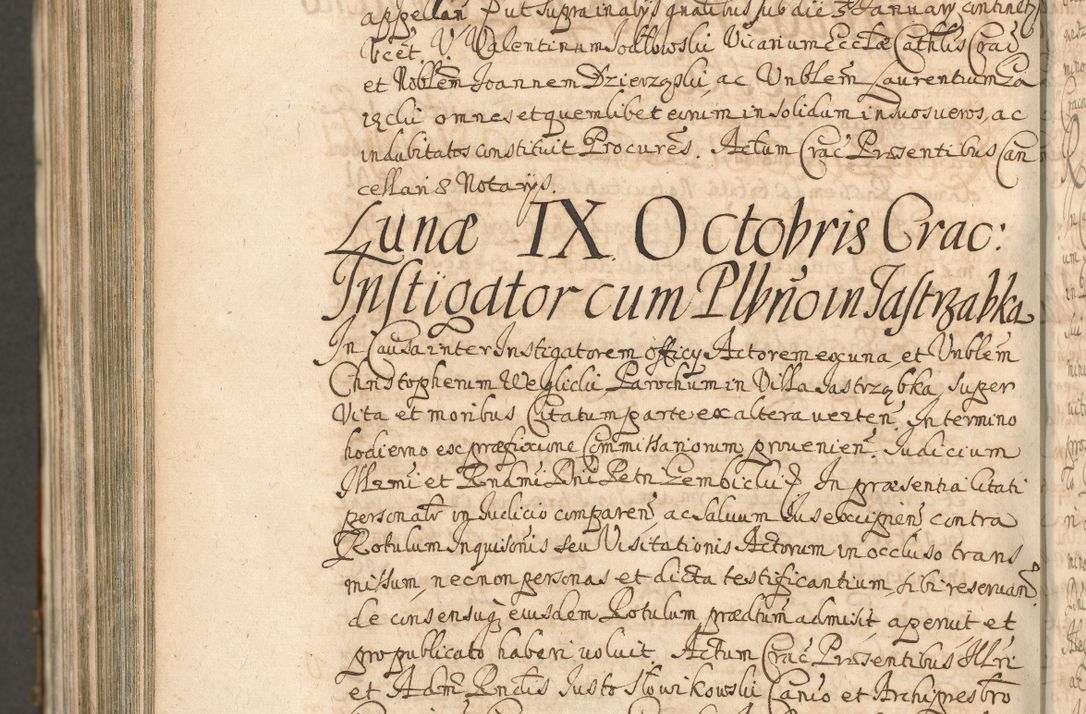 appellan̄ Put supra in alijs qnalibus sub die 3 January continetr
licet. V. Valentinum Jodłowski Vicarium Eccłæ Cathlis Crac̄
et Nobłem Joannem Dzierzgski ac Vnblem Laurentium Za
rzcki omnes et quemlibet eorum in solidum in suos veros, ac
indubitatos constituit Procures. Actum Crac Præsentibus Can
cellari & Notarys.
Lunæ IX. Octobris Crac:
Instigator cum Plbno in Jastrząbka
In Causa inter Instigatorem officy Actorem ex una, et Vnblem
Christopherum Węglicki Parochum in Villa Jastrząbka, super
Vita et moribus Citatum parte ex altera verten̄, In termino
hodierno ex præfixione Commissariorum provenien̄. Judicium
Illrmi et Rndmi Dni Petri Gembicki P In præsentia Citati
personalr in Judicio comparen̄ ac salvum ius excipien̄ contra
Rotulum Inquisonis seu Visitationis Actorum in occluso trans
missum, necnon personas et dicta testificantium, sibi reservan̄
de consensuq eiusdem Rotulum prædtum admisit aperuit et
pro publicato haberi voluit. Actum Crac Præsentibus Illri
et Adm Rndis Justo Słowikowski Canco et Archipresbro